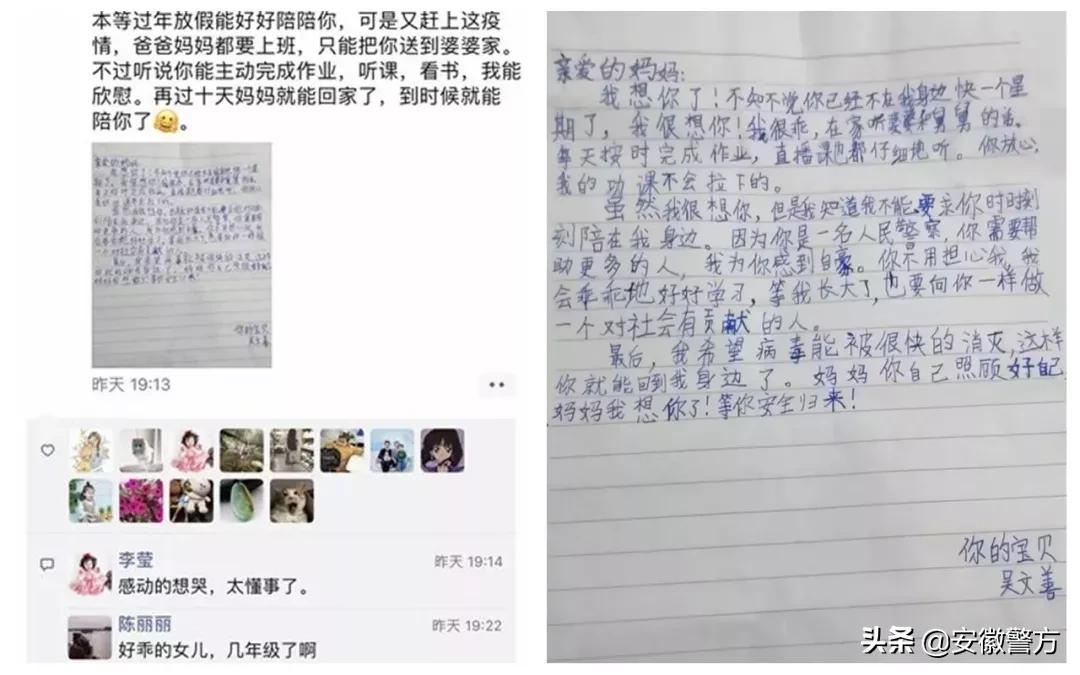 本等过年放假能好好陪陪你，可是又赶上这疫
情，爸爸妈妈都要上班，只能把你送到婆婆家。
不过听说你能主动完成作业，听课，看书，我能
欣慰。再过十天妈妈就能回家了，到时候就能
陪你了🤗。
昨天 19:13
李莹
昨天 19:14
感动的想哭，太懂事了。
陈丽丽
昨天 19:22
好乖的女儿，几年级了啊
亲爱的妈妈：
我想你了！不知不觉你已经不在我身边快一个星
期了，我很想你！我很乖，在家听婆婆和舅舅的话。
每天按时完成作业，直播课也都仔细地听。你放心，
我的功课不会拉下的。
虽然我很想你，但是我知道我不能要求你时时刻
刻陪在我身边。因为你是一名人民警察，你需要帮
助更多的人，我为你感到自豪。你不用担心我，我
会乖乖地好好学习，等我长大了，也要向你一样做
一个对社会有贡献的人。
最后，我希望病毒能被很快的消灭，这样
你就能回到我身边了。妈妈你自己照顾好自己
妈妈我想你了！等你安全归来！
你的宝贝
吴文善
头条 @安徽警方